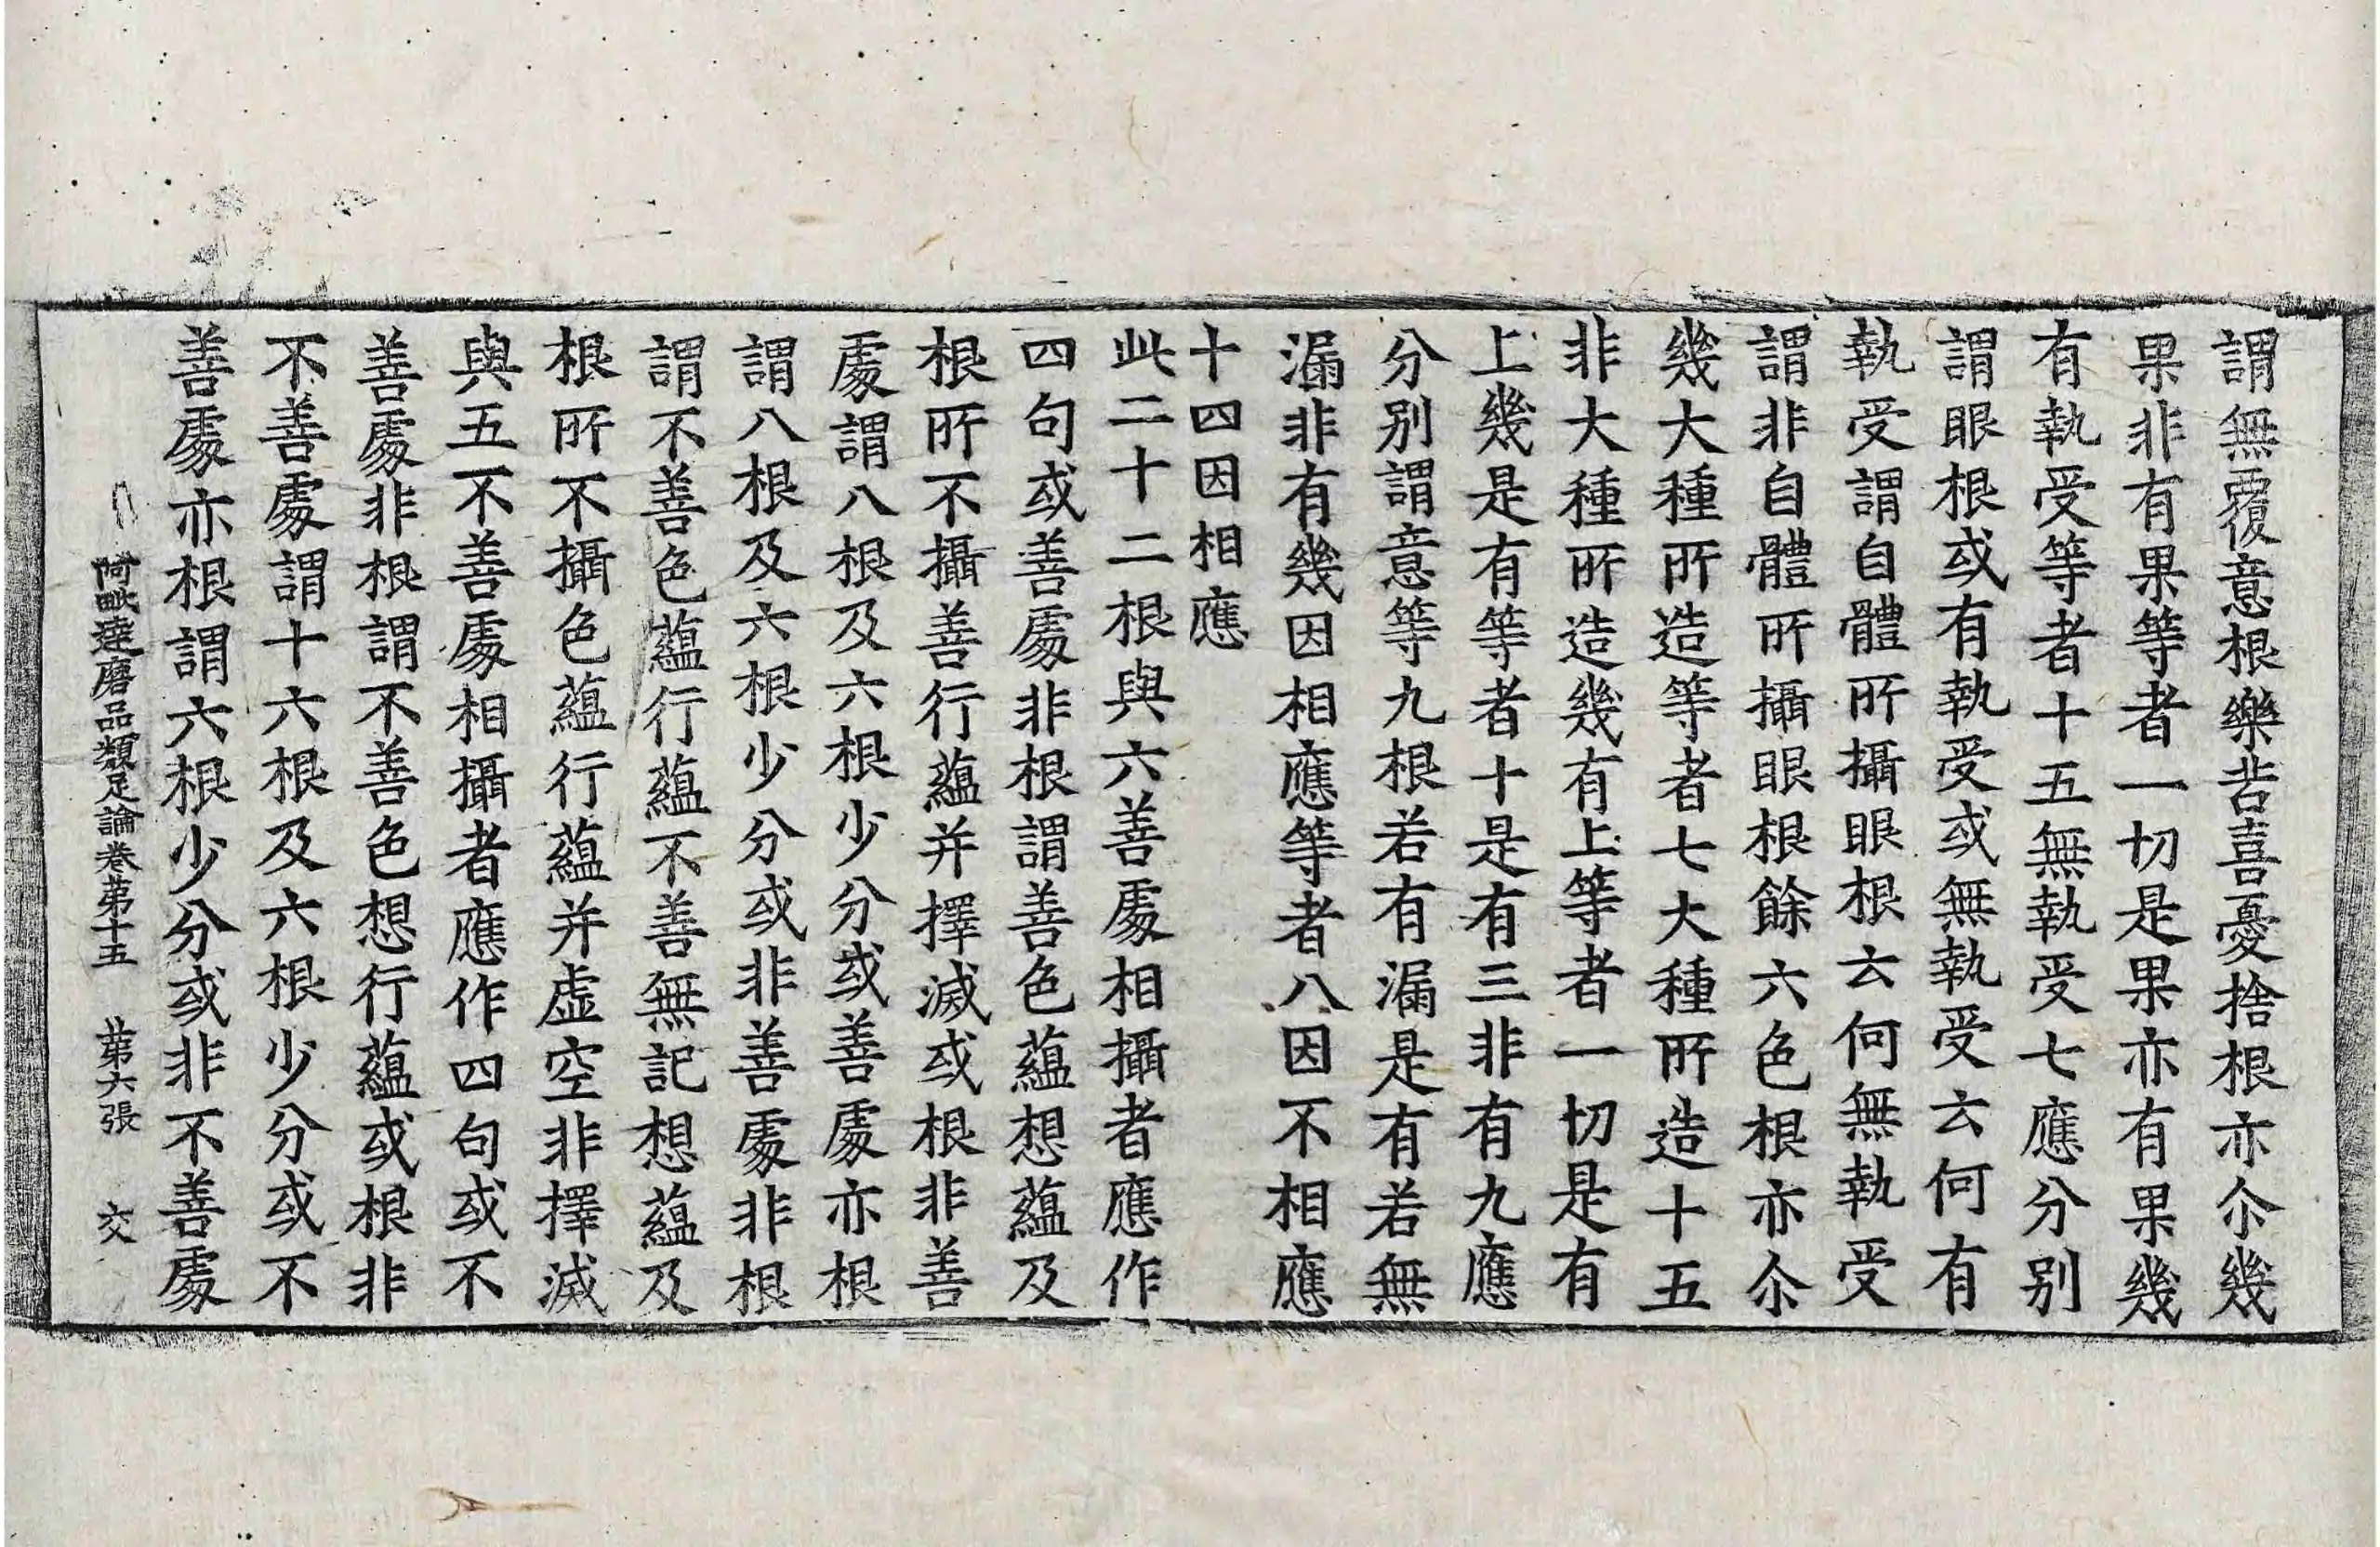 謂無覆意根樂苦喜憂捨根亦尒幾
果非有果等者一切是果亦有果幾
有執受等者十五無執受七應分別
謂眼根或有執受或無執受云何有
執受謂自體所攝眼根云何無執受
謂非自體所攝眼根餘六色根亦尒
幾大種所造等者七大種所造十五
非大種所造幾有上等者一切是有
上幾是有等者十是有三非有九應
分別謂意等九根若有漏是有若無
漏非有幾因相應等者八因不相應
十四因相應
此二十二根與六善處相攝者應作
四句或善處非根謂善色蘊想蘊及
根所不攝善行蘊并擇滅或根非善
處謂八根及六根少分或善處亦根
謂八根及六根少分或非善處非根
謂不善色蘊行蘊不善無記想蘊及
根所不攝色蘊行蘊并虛空非擇滅
與五不善處相攝者應作四句或不
善處非根謂不善色想行蘊或根非
不善處謂十六根及六根少分或不
善處亦根謂六根少分或非不善處
阿毗達磨品類足論卷第十五 第六張 交